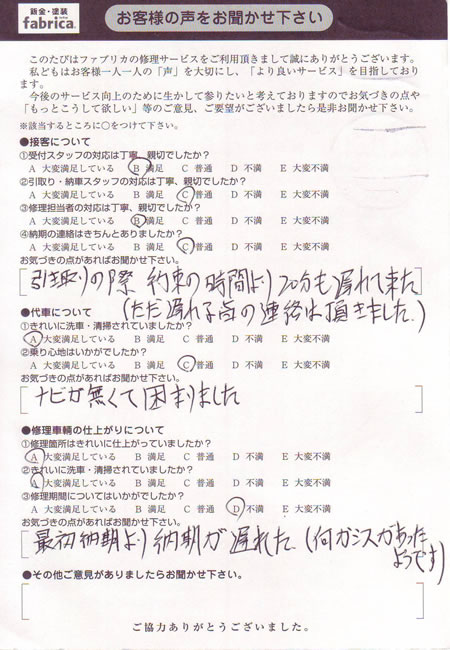 鈑金・塗装
fabrica.
お客様の声をお聞かせ下さい
このたびはファブリカの修理サービスをご利用頂きまして誠にありがとうございます。
私どもはお客様一人一人の「声」を大切にし、「より良いサービス」を目指しており
ます。
今後のサービス向上のために生かして参りたいと考えておりますのでお気づきの点や
「もっとこうして欲しい」等のご意見、ご要望がございましたら是非お聞かせ下さい。
※該当するところに○をつけて下さい。
●接客について
①受付スタッフの対応は丁寧、親切でしたか?
A 大変満足している B 満足 C 普通 D 不満 E 大変不満
②引取り・納車スタッフの対応は丁寧、親切でしたか?
A 大変満足している B 満足 C 普通 D 不満 E 大変不満
③修理担当者の対応は丁寧、親切でしたか?
A 大変満足している B 満足 C 普通 D 不満 E 大変不満
④納期の連絡はきちんとありましたか?
A 大変満足している B 満足 C 普通 D 不満 E 大変不満
お気づきの点があればお聞かせ下さい。
引き取りの際 約束の時間より20分も遅れて来た
(ただ遅れる点の連絡は頂きました。)
●代車について
①きれいに洗車・清掃されていましたか?
A 大変満足している B 満足 C 普通 D 不満 E 大変不満
②乗り心地はいかがでしたか?
A 大変満足している B 満足 C 普通 D 不満 E 大変不満
お気づきの点があればお聞かせ下さい。
ナビが無くて困まりました
●修理車輌の仕上がりについて
①修理箇所はきれいに仕上がっていましたか?
A 大変満足している B 満足 C 普通 D 不満 E 大変不満
②きれいに洗車・清掃されていましたか?
A 大変満足している B 満足 C 普通 D 不満 E 大変不満
③修理期間についてはいかがでしたか?
A 大変満足している B 満足 C 普通 D 不満 E 大変不満
お気づきの点があればお聞かせ下さい。
最初納期より納期が遅れた。(何かミスがあった
ようです)
●その他ご意見がありましたらお聞かせ下さい。
ご協力ありがとうございました。